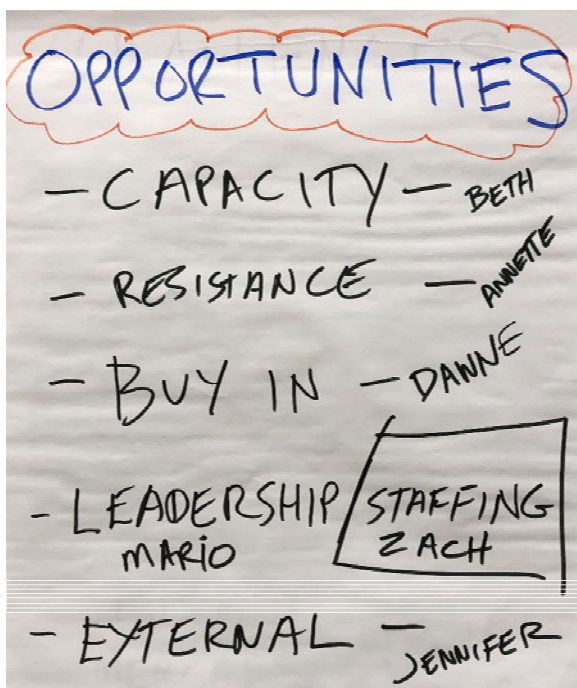 OPPORTUNITIES
- CAPACITY - BETH
- RESISTANCE - ANNETTE
- BUY IN - DAWNE
- LEADERSHIP / STAFFING
MARIO ZACH
- EXTERNAL - JENNIFER